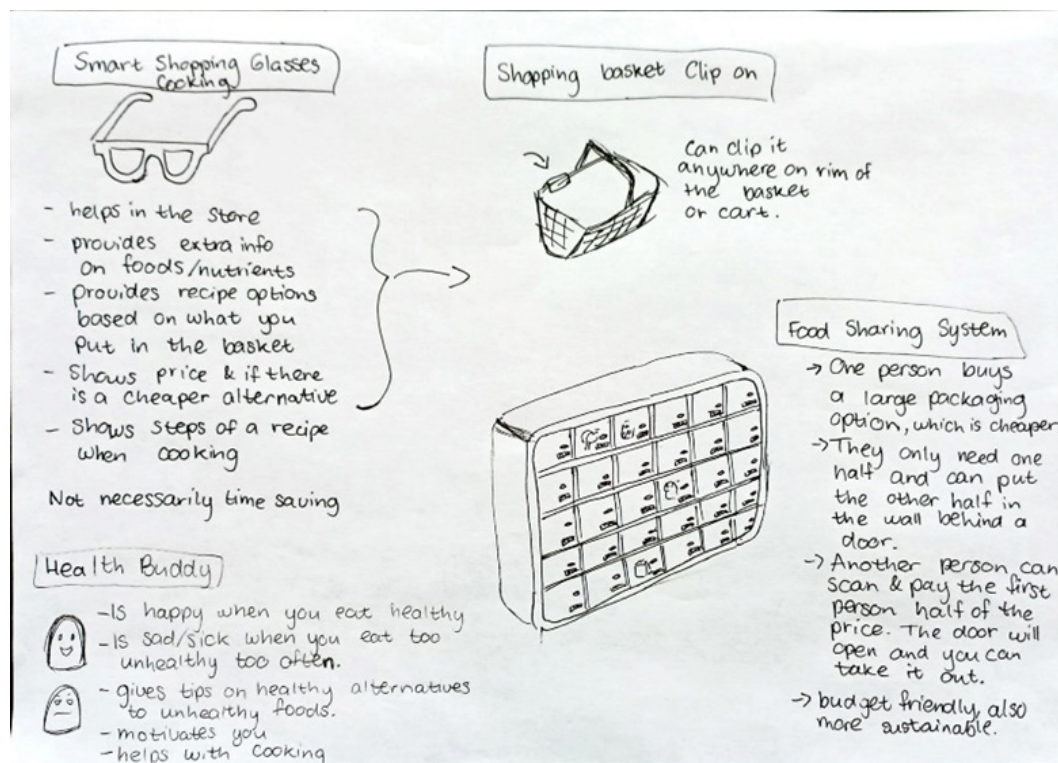 Smart Shopping Glasses
Cooking
- helps in the store
- provides extra info
on foods/nutrients
- Provides recipe options
based on what you
Put in the basket
- Shows price & if there
is a cheaper alternative
- Shows steps of a recipe
when cooking
Not necessarily time saving
Health Buddy
- Is happy when you eat healthy
- Is sad/sick when you eat too
unhealthy too often.
- gives tips on healthy alternatives
to unhealthy foods.
- motivates you
- helps with cooking
Shopping basket Clip on
Can clip it
anywhere on rim of
the basket
or cart.
Food Sharing System
→ One person buys
a large packaging
option, which is cheaper
→ They only need one
half and can put
the other half in
the wall behind a
door.
→ Another person can
scan & pay the first
person half of the
price. The door will
open and you can
take it out.
→ budget friendly, also
more sustainable.